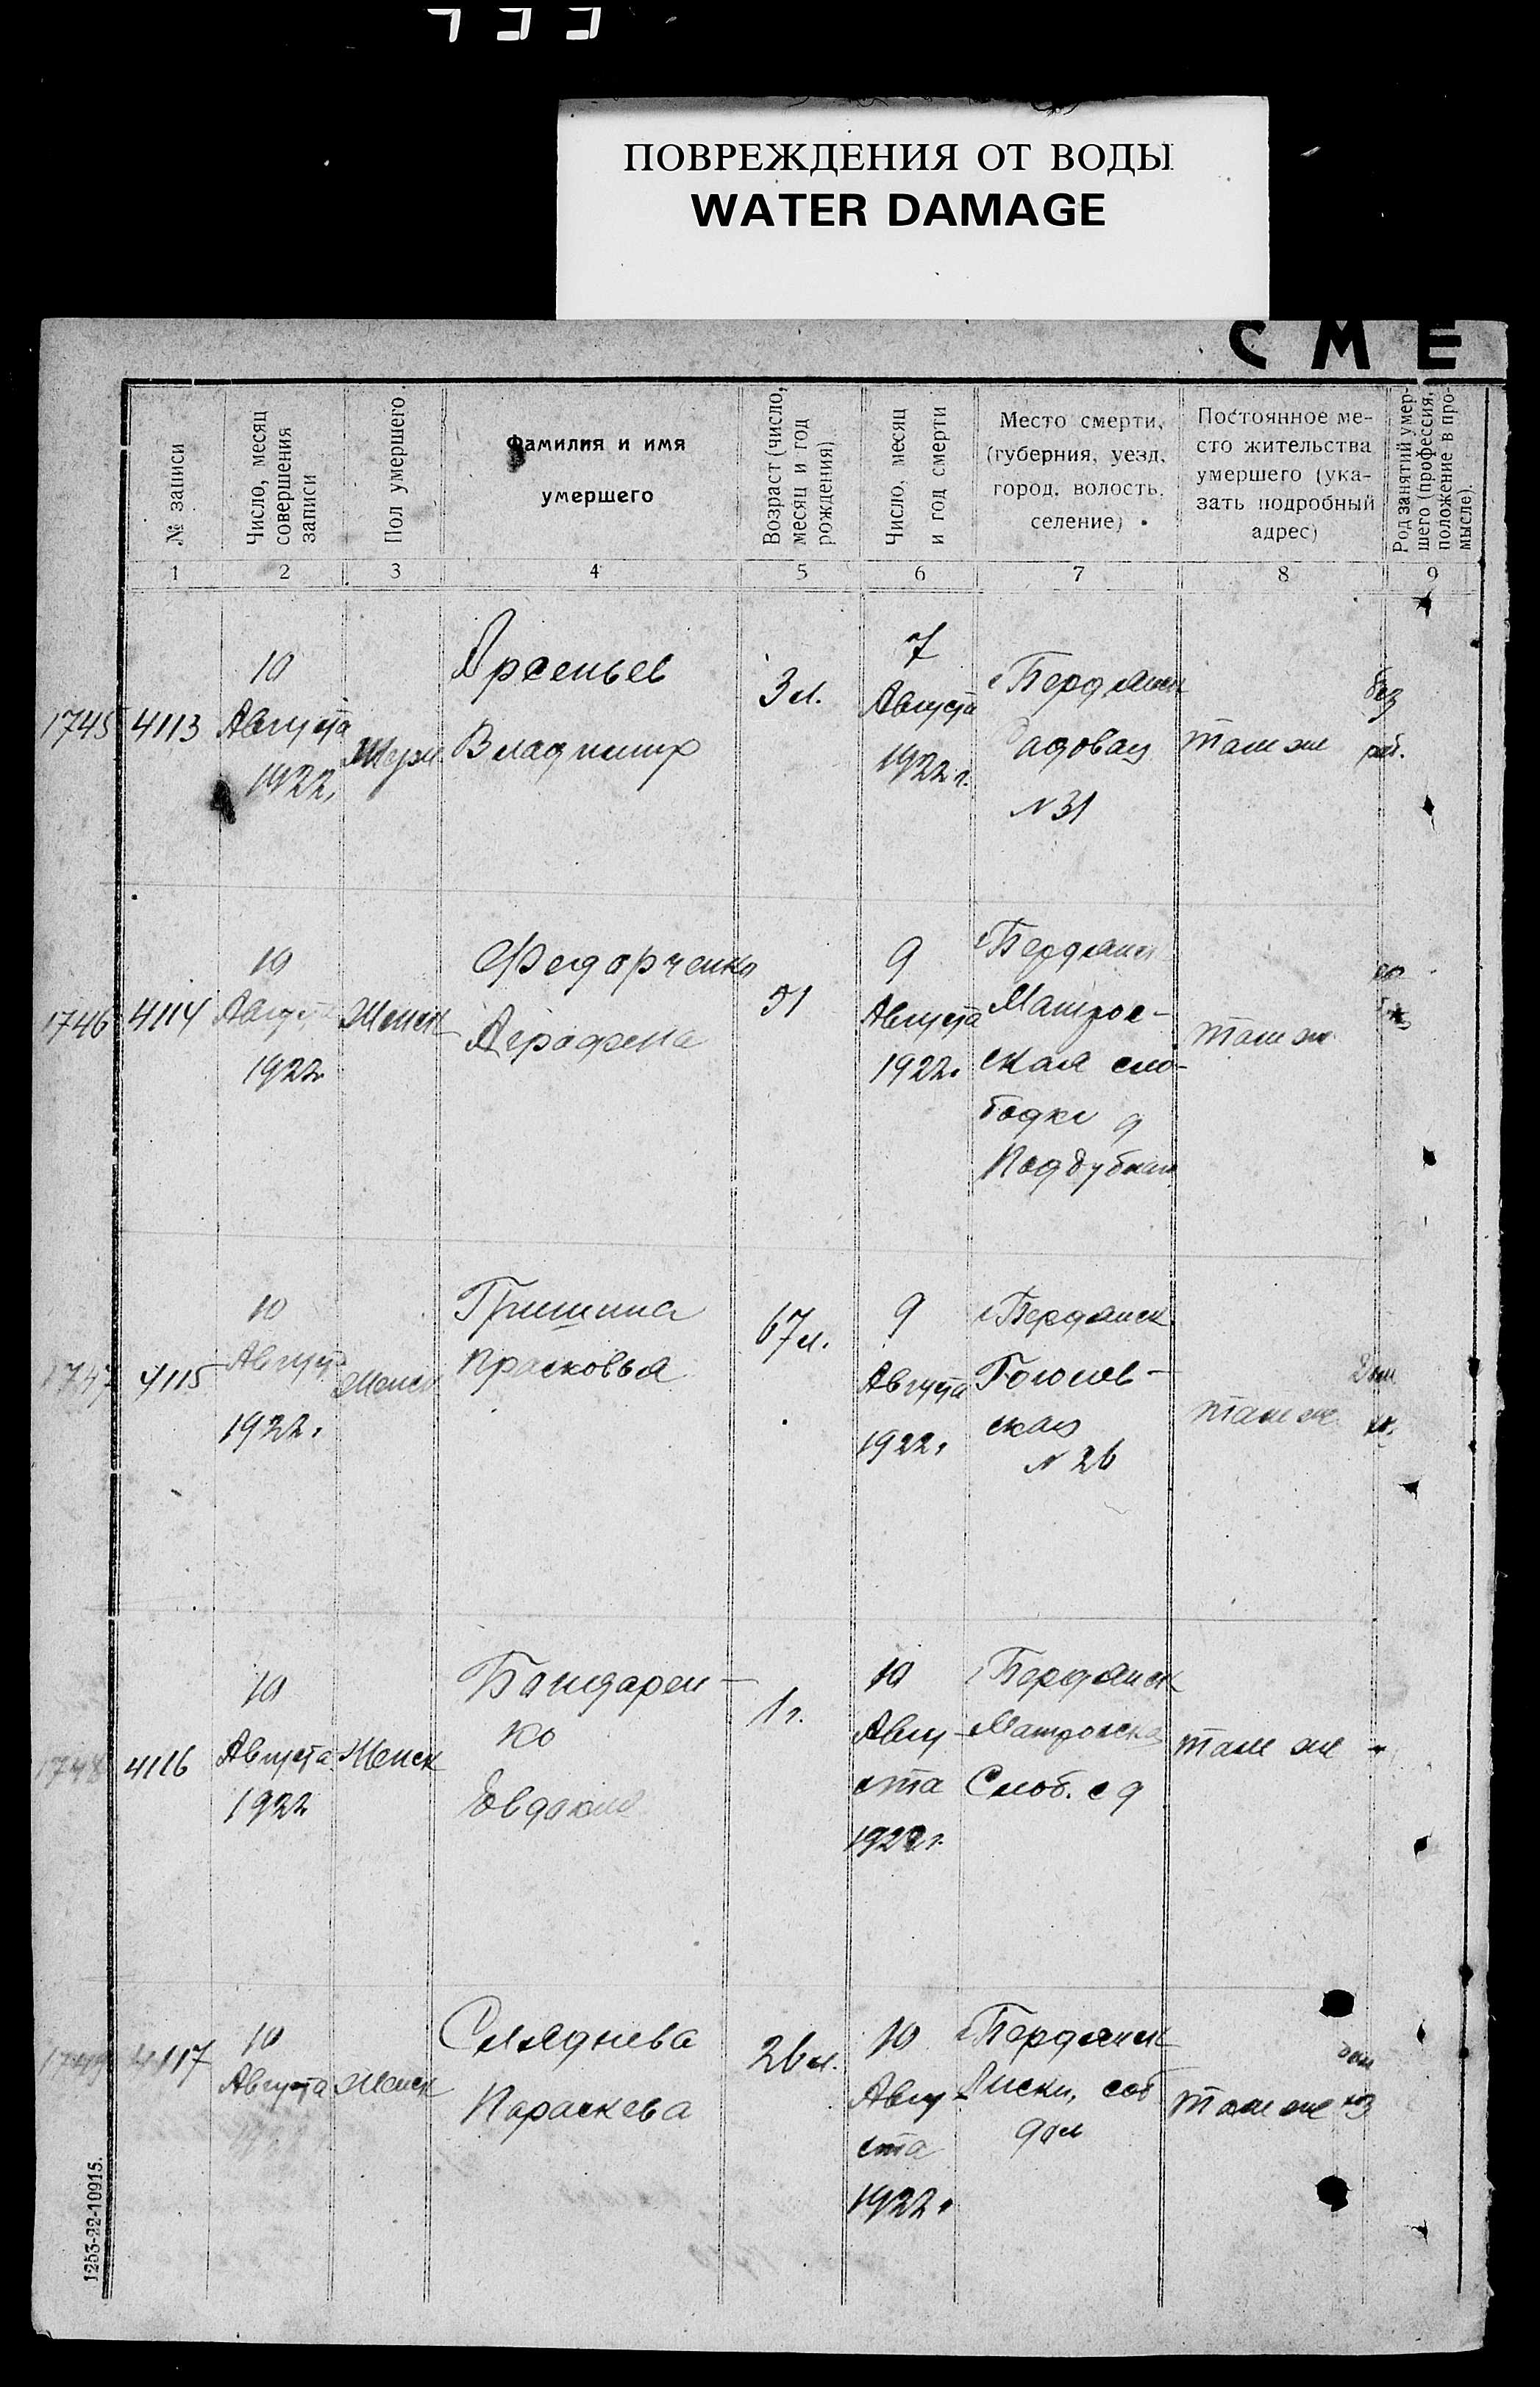 ПОВРЕЖДЕНИЯ ОТ ВОДЫ
WATER DAMAGE
СМЕ
№ записи
Число, месяц
совершения
записи
Пол умершего
Фамилия и имя
умершего
Возраст (число,
месяц и год
рождения)
Число, месяц
и год смерти
Место смерти,
(губерния, уезд,
город, волость,
селение)
Постоянное ме-
сто жительства
умершего (ука-
зать подробный
адрес)
Род занятий умер-
шего (профессия,
положение в про-
мысле).
1 2 3 4 5 6 7 8 9
1745
4113
10
Августа
1922,
Муж
Арсеньев
Владимир
3 л.
7
Августа
1922 г.
г Бердянск
Садовая
N 31
там же
без
раб.
1746
4114
10
Августа
1922
Женск
Федорченко
Аграфена
51
9
Августа
1922.
г Бердянск
Матрос-
ская сло-
бодка д
Поддубная
там же
1747
4115
10
Август
1922.
Женск
Гришина
Прасковья
67 л.
9
Августа
1922.
г Бердянск
Гоголев-
ская
N 26
там же
Дом
х.
1748
4116
10
Августа
1922
Женск
Бондарен-
ко
Евдокия
1 г.
10
Авгу-
ста
1922 г.
г Бердянск
Матросска
Слоб. с д
там же
-
1749
4117
10
Августа
Женск
Сляднева
Параскева
26 л.
10
Авгу-
ста
1922.
г Бердянск
Лиски, соб
дом
там же
дом
хоз
1253-22-10915.